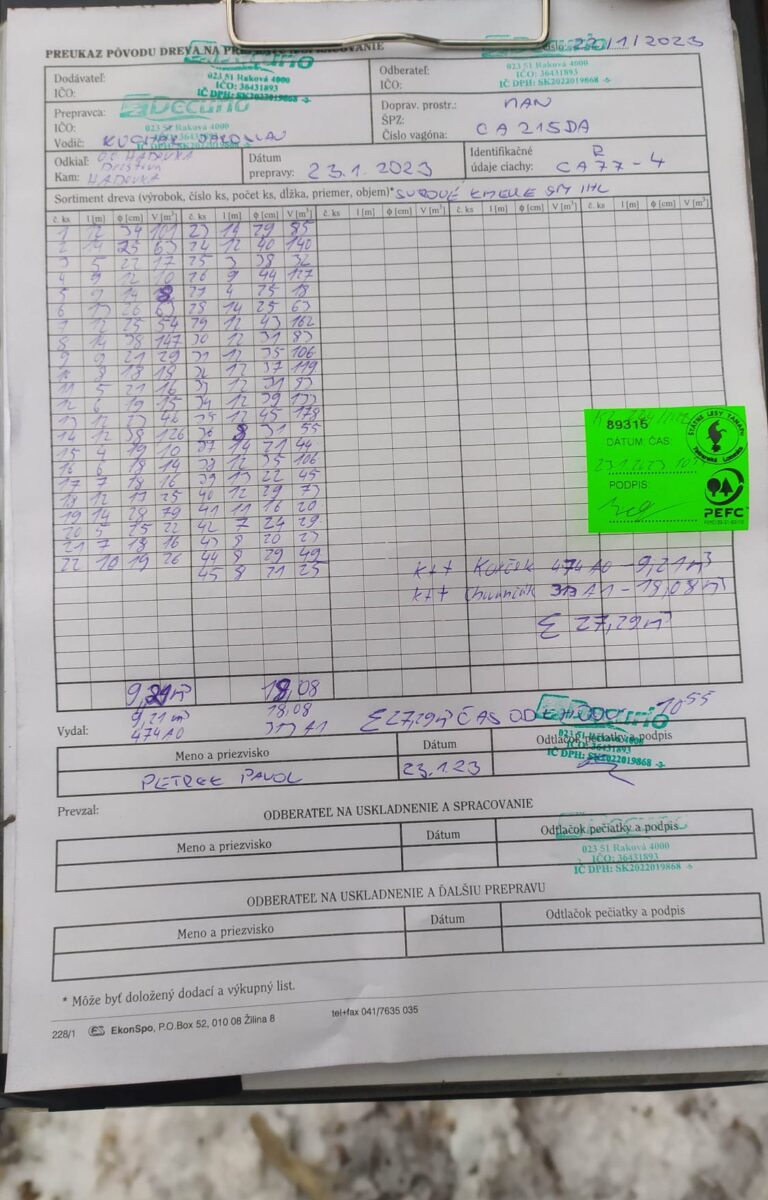 PREUKAZ PÔVODU DREVA NA
22/1/2023
Dodávateľ:
IČO:
023 51 Raková 4000
IČO: 36431893
IČ DPH: SK2022019868
Odberateľ:
IČO:
023 51 Raková 4000
IČO: 36431893
IČ DPH: SK2022019868
Prepravca:
IČO:
Vodič:
Decurio
023 51 Raková 4000
Doprav. prostr.: MAN
ŠPZ:
Číslo vagóna: CA 215DA
Odkiaľ:
Kam: HABOVKA
Dátum
prepravy: 23.1.2023
Identifikačné
údaje ciachy: CA77-4
Sortiment dreva (výrobok, číslo ks, počet ks, dĺžka, priemer, objem)* SUROVÉ KMENE SM IHL
č. ks l [m] ϕ [cm] V [m³] č. ks l [m] ϕ [cm] V [m³] č. ks l [m] ϕ [cm] V [m³] č. ks l [m] ϕ [cm] V [m³] č. ks l [m] ϕ [cm] V [m³]
1 12 34 101 23 14 29 85
2 14 25 63 24 12 40 140
3 5 22 17 25 3 38 32
4 9 12 10 26 9 44 127
5 9 14 27 4 25 18
6 13 26 63 28 14 25 63
7 12 25 54 29 12 43 162
8 14 38 147 30 12 31 83
9 9 21 29 31 12 35 106
10 8 18 18 12 37 119
11 5 21 16 12 31 83
12 6 19 15 34 12 39 133
12 46 35 12 45 178
14 12 38 126 36 8 31 55
15 4 19 10 37 14 21 44
16 6 18 14 38 12 35 106
17 7 18 16 39 13 22 45
18 12 17 25 40 12 29 73
19 14 28 79 41 11 16 20
20 5 25 22 42 7 24 29
21 7 18 16 43 8 20 23
22 10 19 26 44 8 29 49
45 8 21 25
89315
DÁTUM ČAS
23.1.2023
PODPIS
ŠTÁTNE LESY TANAPU
Tatranská Lomnica
PEFC
474 A0 - 9,21 m³
313 A1 - 18,08 m³
Σ 27,29 m³
18,08
9,21 m³ 18.08
474 A0 313 A1
Σ 27,29 m³ ČAS ODCHODU 10⁵⁵
Vydal:
Meno a priezvisko
Dátum
Odtlačok pečiatky a podpis
PETREK PAVOL
23.1.23
023 51 Raková 4000
IČO: 36431893
IČ DPH: SK2022019868
Prevzal:
ODBERATEĽ NA USKLADNENIE A SPRACOVANIE
Meno a priezvisko
Dátum
Odtlačok pečiatky a podpis
023 51 Raková 4000
IČO: 36431893
IČ DPH: SK2022019868
ODBERATEĽ NA USKLADNENIE A ĎALŠIU PREPRAVU
Meno a priezvisko
Dátum
Odtlačok pečiatky a podpis
* Môže byť doložený dodací a výkupný list.
228/1 EkonSpo, P.O.Box 52, 010 08 Žilina 8 tel+fax 041/7635 035